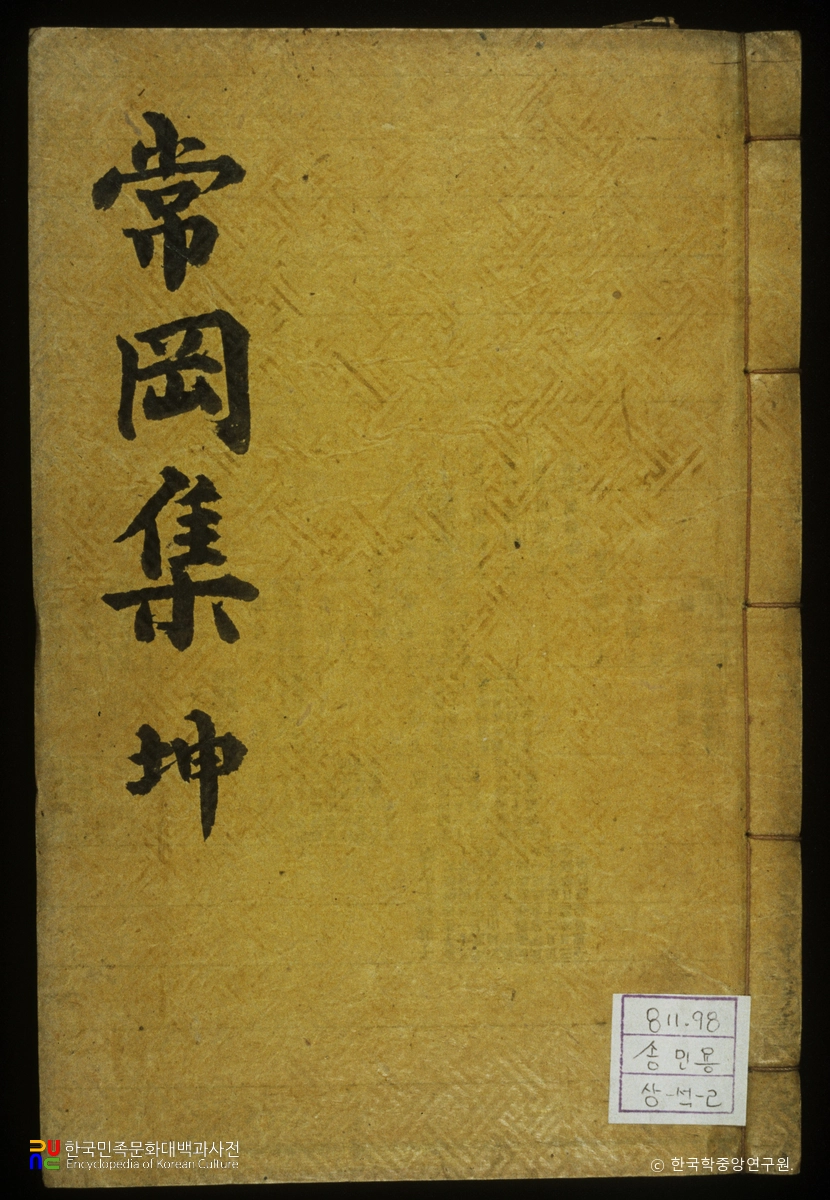 常岡集 坤
811.98
송민용
상-석-2
한국민족문화대백과사전
Encyclopedia of Korean Culture
ⓒ 한국학중앙연구원